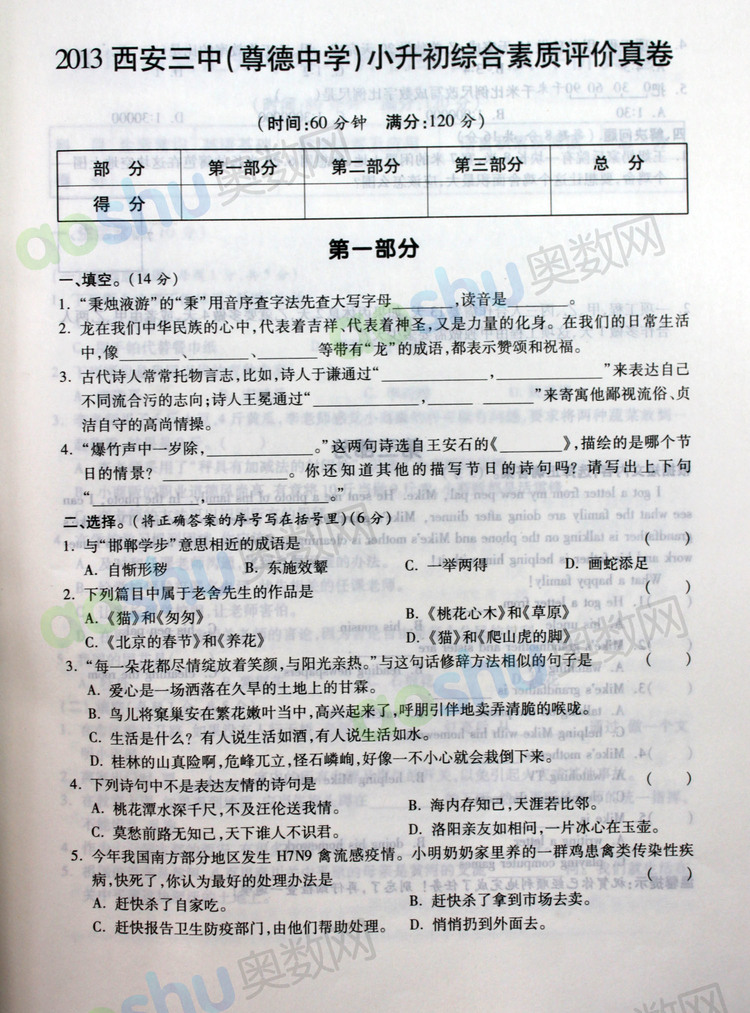 2013 西安三中(尊德中学)小升初综合素质评价真卷
(时间:60 分钟 满分:120 分)
部 分 第一部分 第二部分 第三部分 总 分
得 分
第一部分
一、填空。(14 分)
1. “秉烛液游”的“秉”用音序查字法先查大写字母________,读音是________。
2. 龙在我们中华民族的心中,代表着吉祥,代表着神圣,又是力量的化身。在我们的日常生活
中,像________、________、________等带有“龙”的成语,都表示赞颂和祝福。
3. 古代诗人常常托物言志,比如,诗人于谦通过“______________,______________”来表达自己
不同流合污的志向;诗人王冕通过“______________,______________”来寄寓他鄙视流俗、贞
洁自守的高尚情操。
4. “爆竹声中一岁除,______________。”这两句诗选自王安石的《________》,描绘的是哪个节
日的情景?______________。你还知道其他的描写节日的诗句吗?请写出上下句
“______________,______________。”
二、选择。(将正确答案的序号写在括号里)(6 分)
1. 与“邯郸学步”意思相近的成语是 ( )
A. 自惭形秽 B. 东施效颦 C. 一举两得 D. 画蛇添足
2. 下列篇目中属于老舍先生的作品是 ( )
A. 《猫》和《匆匆》 B. 《桃花心木》和《草原》
C. 《北京的春节》和《养花》 D. 《猫》和《爬山虎的脚》
3. “每一朵花都尽情绽放着笑颜,与阳光亲热。”与这句话修辞方法相似的句子是 ( )
A. 爱心是一场洒落在久旱的土地上的甘霖。
B. 鸟儿将窠巢安在繁花嫩叶当中,高兴起来了,呼朋引伴地卖弄清脆的喉咙。
C. 生活是什么?有人说生活如酒,有人说生活如水。
D. 桂林的山真险啊,危峰兀立,怪石嶙峋,好像一不小心就会栽倒下来。
4. 下列诗句中不是表达友情的诗句是 ( )
A. 桃花潭水深千尺,不及汪伦送我情。 B. 海内存知己,天涯若比邻。
C. 莫愁前路无知己,天下谁人不识君。 D. 洛阳亲友如相问,一片冰心在玉壶。
5. 今年我国南方部分地区发生 H7N9 禽流感疫情。小明奶奶家里养的一群鸡患禽类传染性疾
病,快死了,你认为最好的处理办法是 ( )
A. 赶快杀了自家吃。 B. 赶快杀了拿到市场去卖。
C. 赶快报告卫生防疫部门,由他们帮助处理。 D. 悄悄扔到外面去。
aoshu奥数网